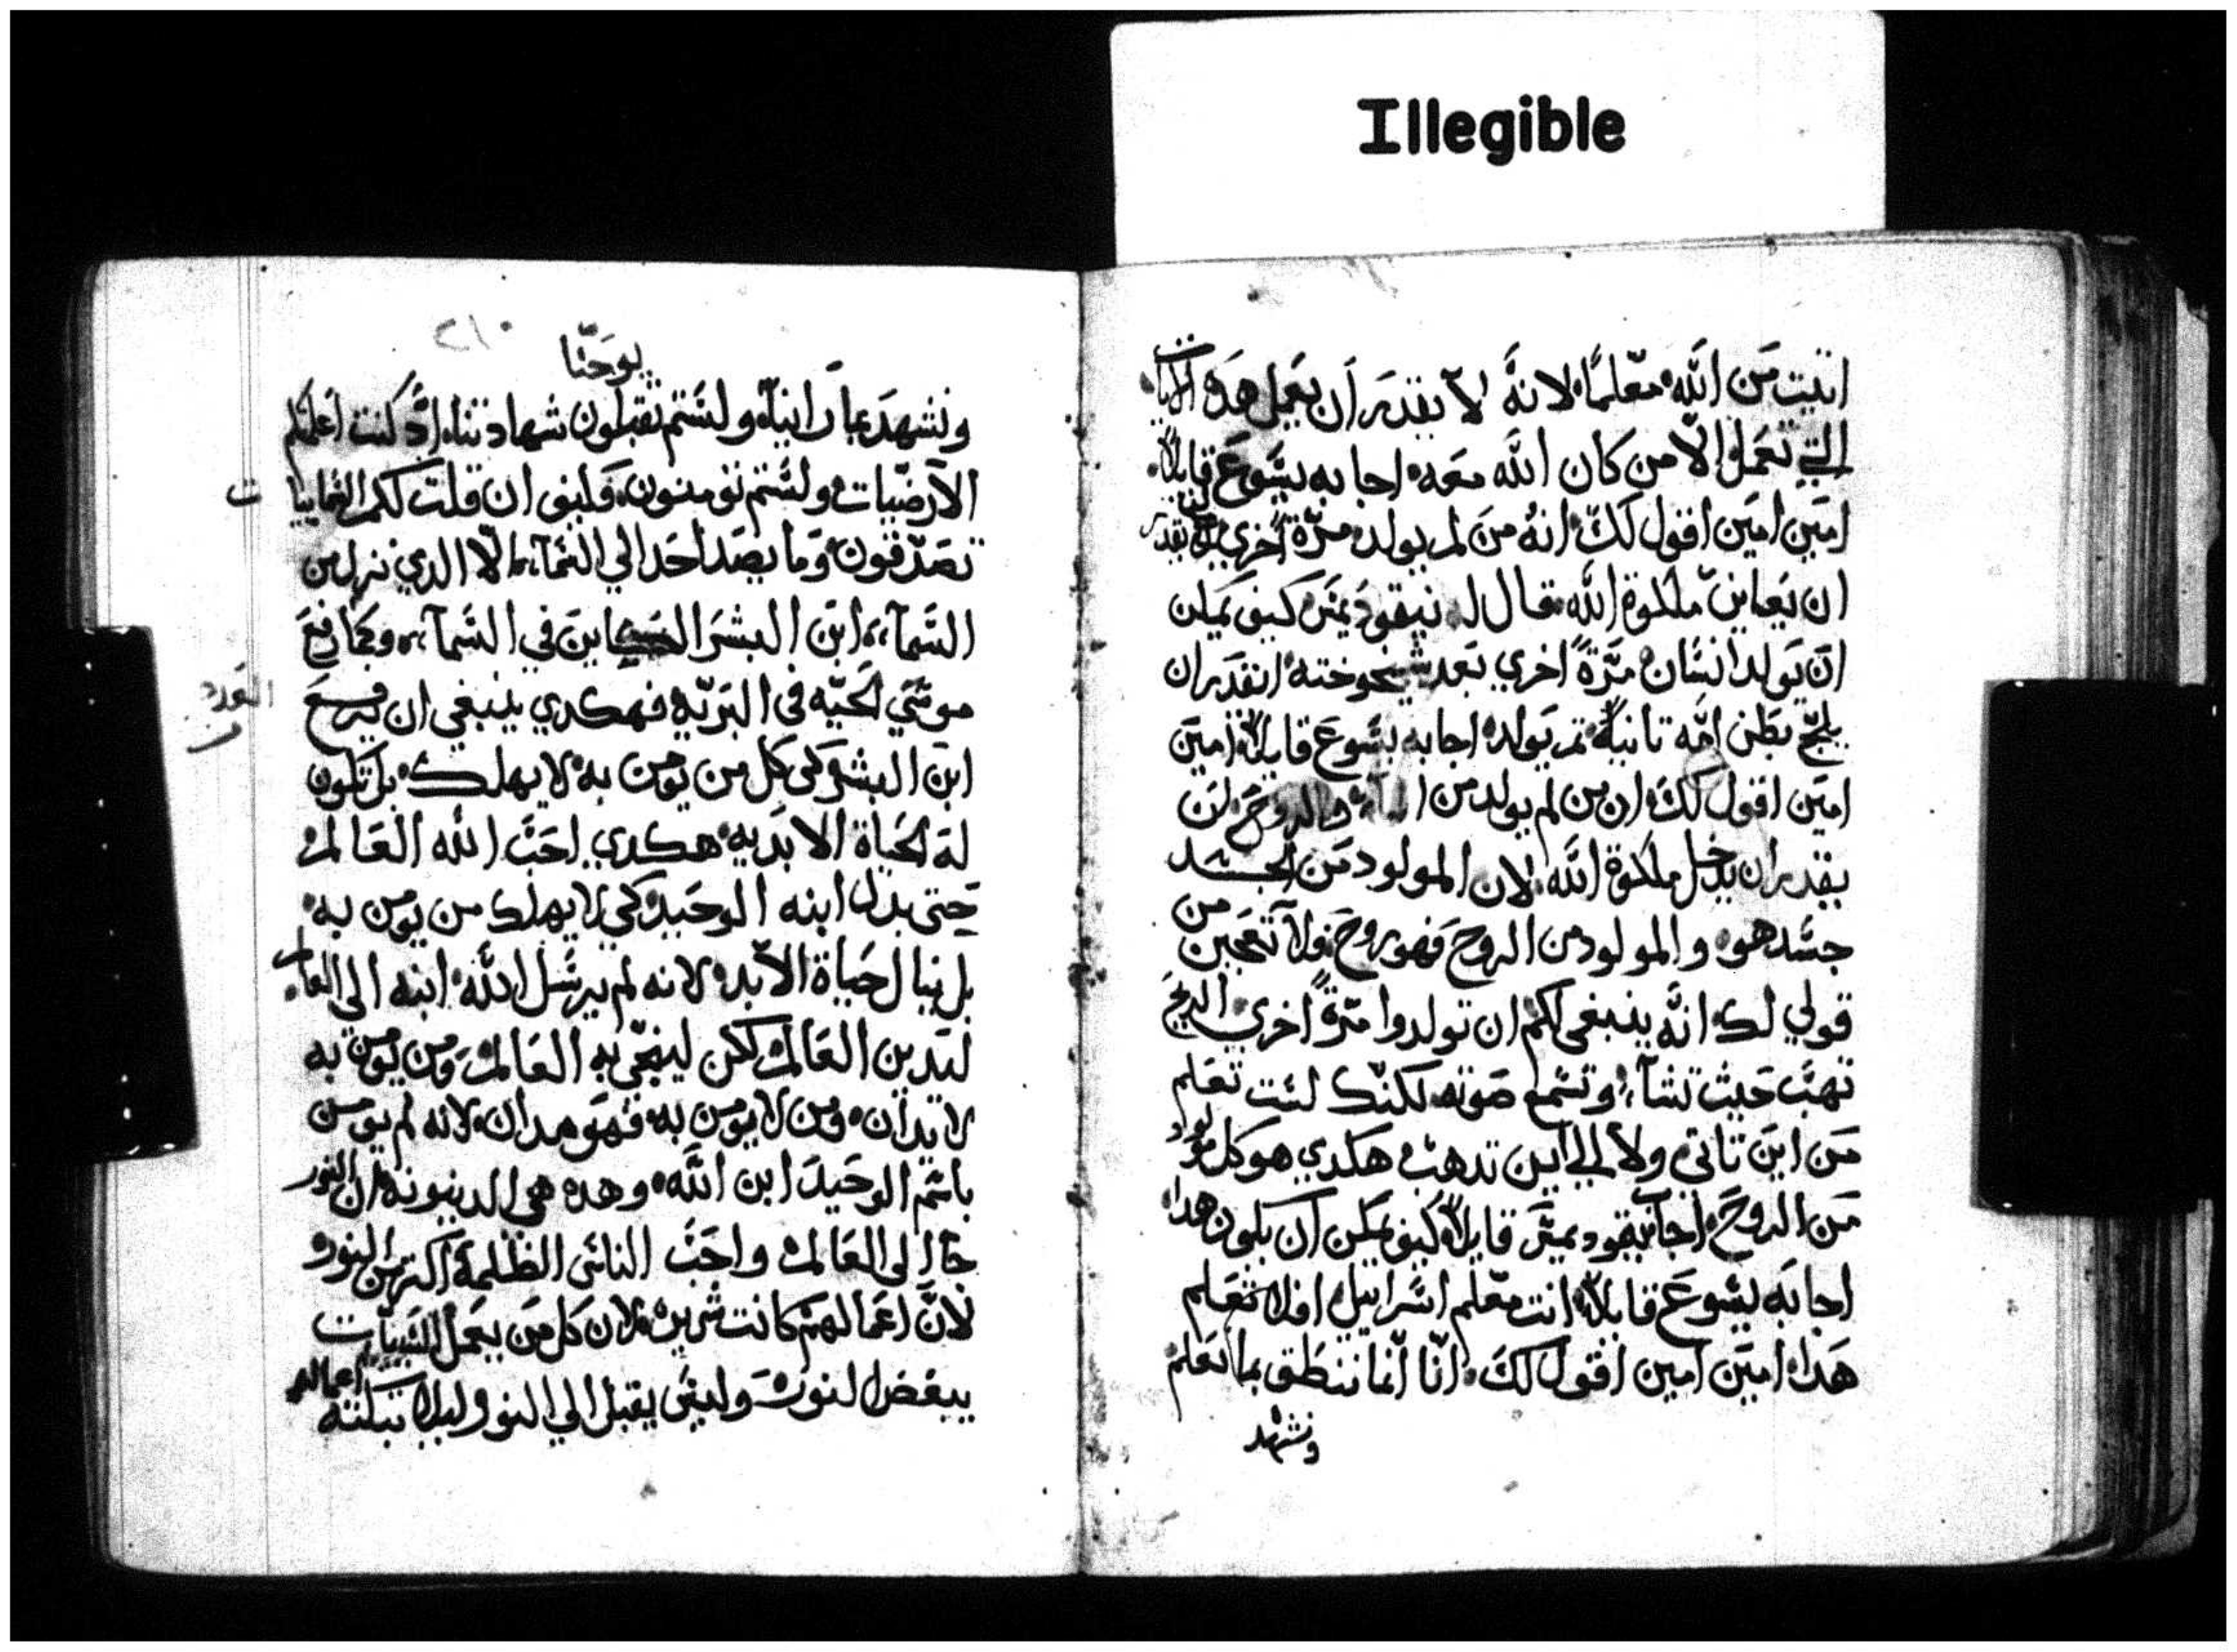 Illegible
اتيت من الله معلمًا لانه لا يقدر ان يعمل هده الايات
التي تعمل الا من كان الله معه اجابه يسوع قايلاً
امين امين اقول لك انه من لم يولد مرّة اخري لا يقدر
ان يعاين ملكوة الله قال له نيقوديمس كيف يمكن
ان يولد انسان مرّةً اخري بعد شيخوخته ايقدر ان
يلج بطن امّه تانيةً تم يولد اجابه يسوع قايلاً امين
امين اقول لك ان من لم يولد من الماء والروح لن
يقدر ان يدخل ملكوة الله لان المولود من الجسد
جسد هو والمولود من الروح فهو روح ولا تعجبن من
قولي لك انه ينبغي لكم ان تولدوا مرّةً اخري الريح
تهب حيت تشآء وتسمع صوته لكنك لست تعلم
من اين تاتي ولا الي اين تدهب هكدي هو كل مولود
من الروح اجاب نيقوديمس قايلاً كيف يمكن ان يكون هدا
اجابه يسوع قايلاً انت معلم اسراييل افلا تعلم
هدا امين امين اقول لك انّا انّما ننطق بما نعلم
ونشهد
٢١٠
يوحنّا
ونشهد بما راينآه ولستم تقبلون شهادتنا ان كنت اعلمتكم
الارضيات ولستم تومنون فكيف ان قلت لكم السماييات
تصدّقون وما يصعد احد الي السمآء الّا الدي نزل من
السمآء ابن البشر الكاين في السمآء وكما رفع
موسي الحيّه في البريّه فهكدي ينبغي ان يرفع
ابن البشر كي كل من يومن به لا يهلك بل تكون
له الحياة الابديه هكدي احبّ الله العالم
حتي بدل ابنه الوحيد كي لا يهلك من يومن به
بل ينال حياة الابد لانه لم يرسل الله ابنه الي العالم
ليدين العالم لكن لينجّي به العالم ومن يومن به
لا يدان ومن لا يومن به فهو مدان لانه لم يومن
باسم الوحيد ابن الله وهده هي الدينونه ان النور
جا الي العالم واحبّ الناس الظلمة اكتر من النور
لانّ اعمالهم كانت شريره لان كل من يعمل السييات
يبغض النور وليس يقبل الي النور ليلا تبكته اعماله